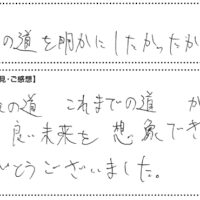 の道を明かにしたかったか
見・ご感想】
の道 これまでの道 か
良い未来を 想像でき
がとうございました。